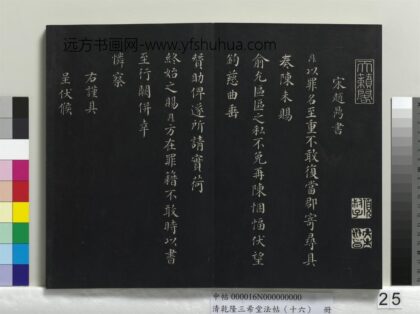 远方书画网-www.yfshuhua.com
宋趙鼎書
以罪名至重不敢復當郡寄尋具
奏陳未賜
俞允區區之私不免再陳悃愊伏望
鈞慈曲垂
贊助俾遂所請實荷
終始之賜 方在罪籍不敢時以書
至行闕併幸
憐察
右謹具
呈伏候
中帖 000016N000000000
清乾隆三希堂法帖(十六) 冊
25